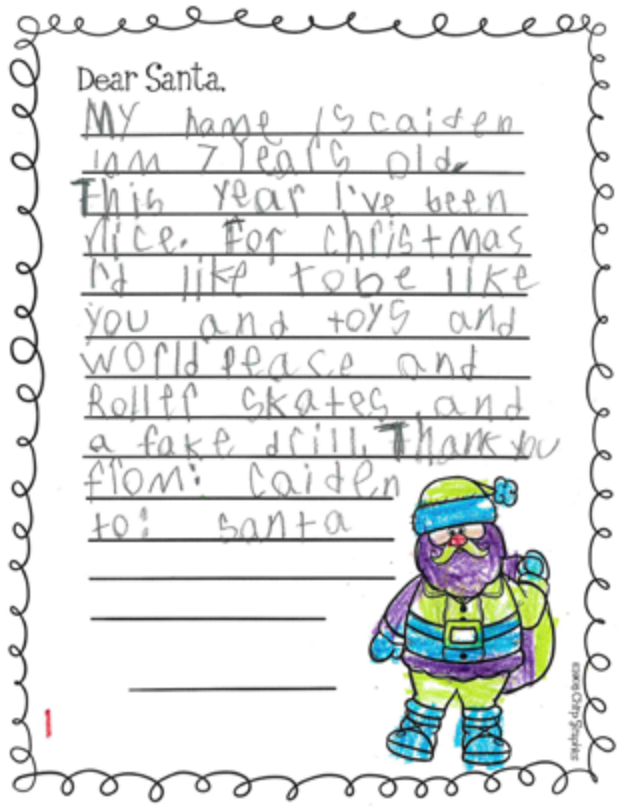 Dear Santa,
My name is caiden
im 7 years old.
This year I've been
nice. For christmas
I'd like to be like
you and toys and
world peace and
Roller skates and
a fake drill. Thank you
from: caiden
to: santa